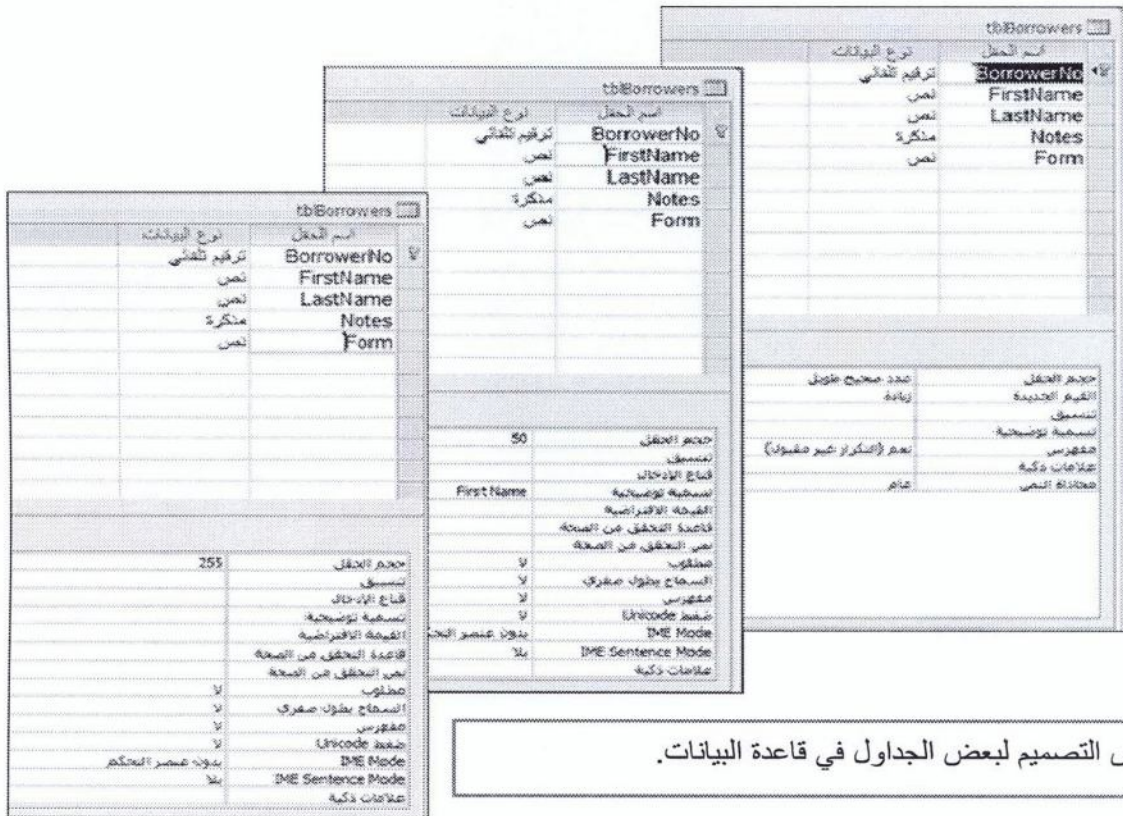 tblBorrowers
اسم الحقل نوع البيانات
BorrowerNo ترقيم تلقائي
FirstName نص
LastName نص
Notes مذكرة
Form نص
حجم الحقل عدد صحيح طويل
القيم الجديدة زيادة
تنسيق
تسمية توضيحية
مفهرس نعم (التكرار غير مقبول)
علامات ذكية
محاذاة النص عام
tblBorrowers
اسم الحقل نوع البيانات
BorrowerNo ترقيم تلقائي
FirstName نص
LastName نص
Notes مذكرة
Form نص
حجم الحقل 50
تنسيق
قناع الإدخال
تسمية توضيحية First Name
القيمة الافتراضية
قاعدة التحقق من الصحة
نص التحقق من الصحة
مطلوب لا
السماح بطول صفري لا
مفهرس لا
ضغط Unicode لا
IME Mode بدون عنصر التحك
IME Sentence Mode بلا
علامات ذكية
tblBorrowers
اسم الحقل نوع البيانات
BorrowerNo ترقيم تلقائي
FirstName نص
LastName نص
Notes مذكرة
Form نص
حجم الحقل 255
تنسيق
قناع الإدخال
تسمية توضيحية
القيمة الافتراضية
قاعدة التحقق من الصحة
نص التحقق من الصحة
مطلوب لا
السماح بطول صفري لا
مفهرس لا
ضغط Unicode لا
IME Mode بدون عنصر التحكم
IME Sentence Mode بلا
علامات ذكية
التصميم لبعض الجداول في قاعدة البيانات.